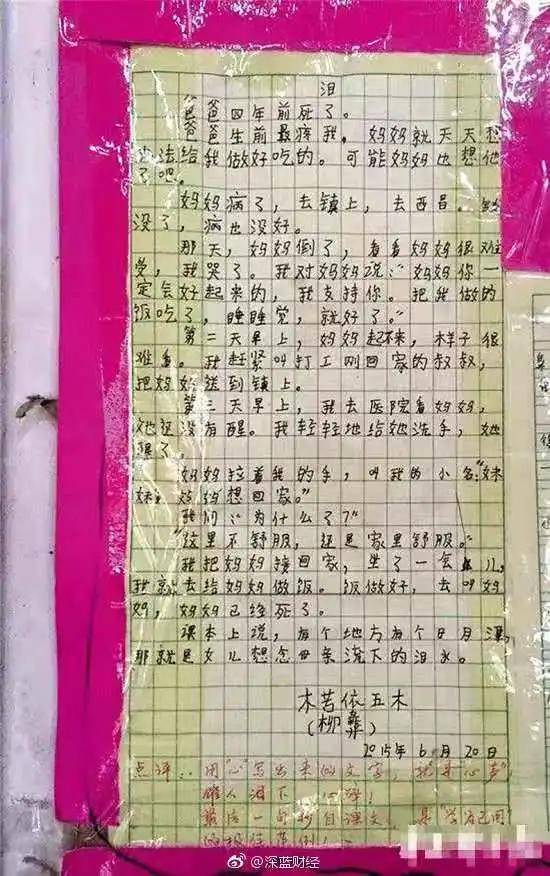 泪
爸爸四年前死了。
爸爸生前最疼我，妈妈就天天想
办法给我做好吃的。可能妈妈也想他
了吧。
妈妈病了，去镇上，去西昌。钱
没了，病也没好。
那天，妈妈倒了，看看妈妈很难
受，我哭了。我对妈妈说：“妈妈你一
定会好起来的，我支持你。把我做的
饭吃了，睡睡觉，就好了。”
第二天早上，妈妈起不来，样子很
难看。我赶紧叫打工刚回家的叔叔，
把妈妈送到镇上。
第三天早上，我去医院看妈妈，
她还没有醒。我轻轻地给她洗手，她
醒了。
妈妈拉着我的手，叫我的小名“妹
妹，妈妈想回家。”
我问：“为什么了？”
“这里不舒服，还是家里舒服。”
我把妈妈接回家，坐了一会儿，
我就去给妈妈做饭。饭做好，去叫妈
妈，妈妈已经死了。
课本上说，有个地方有个日月潭，
那就是女儿想念母亲流下的泪水。
木苦依五木
（柳彝）
2015年6月20日
点评：用“心”写出来的文字，就是“心声”
催人泪下
最后一句抄自课文，是“学有已用”
@深蓝财经